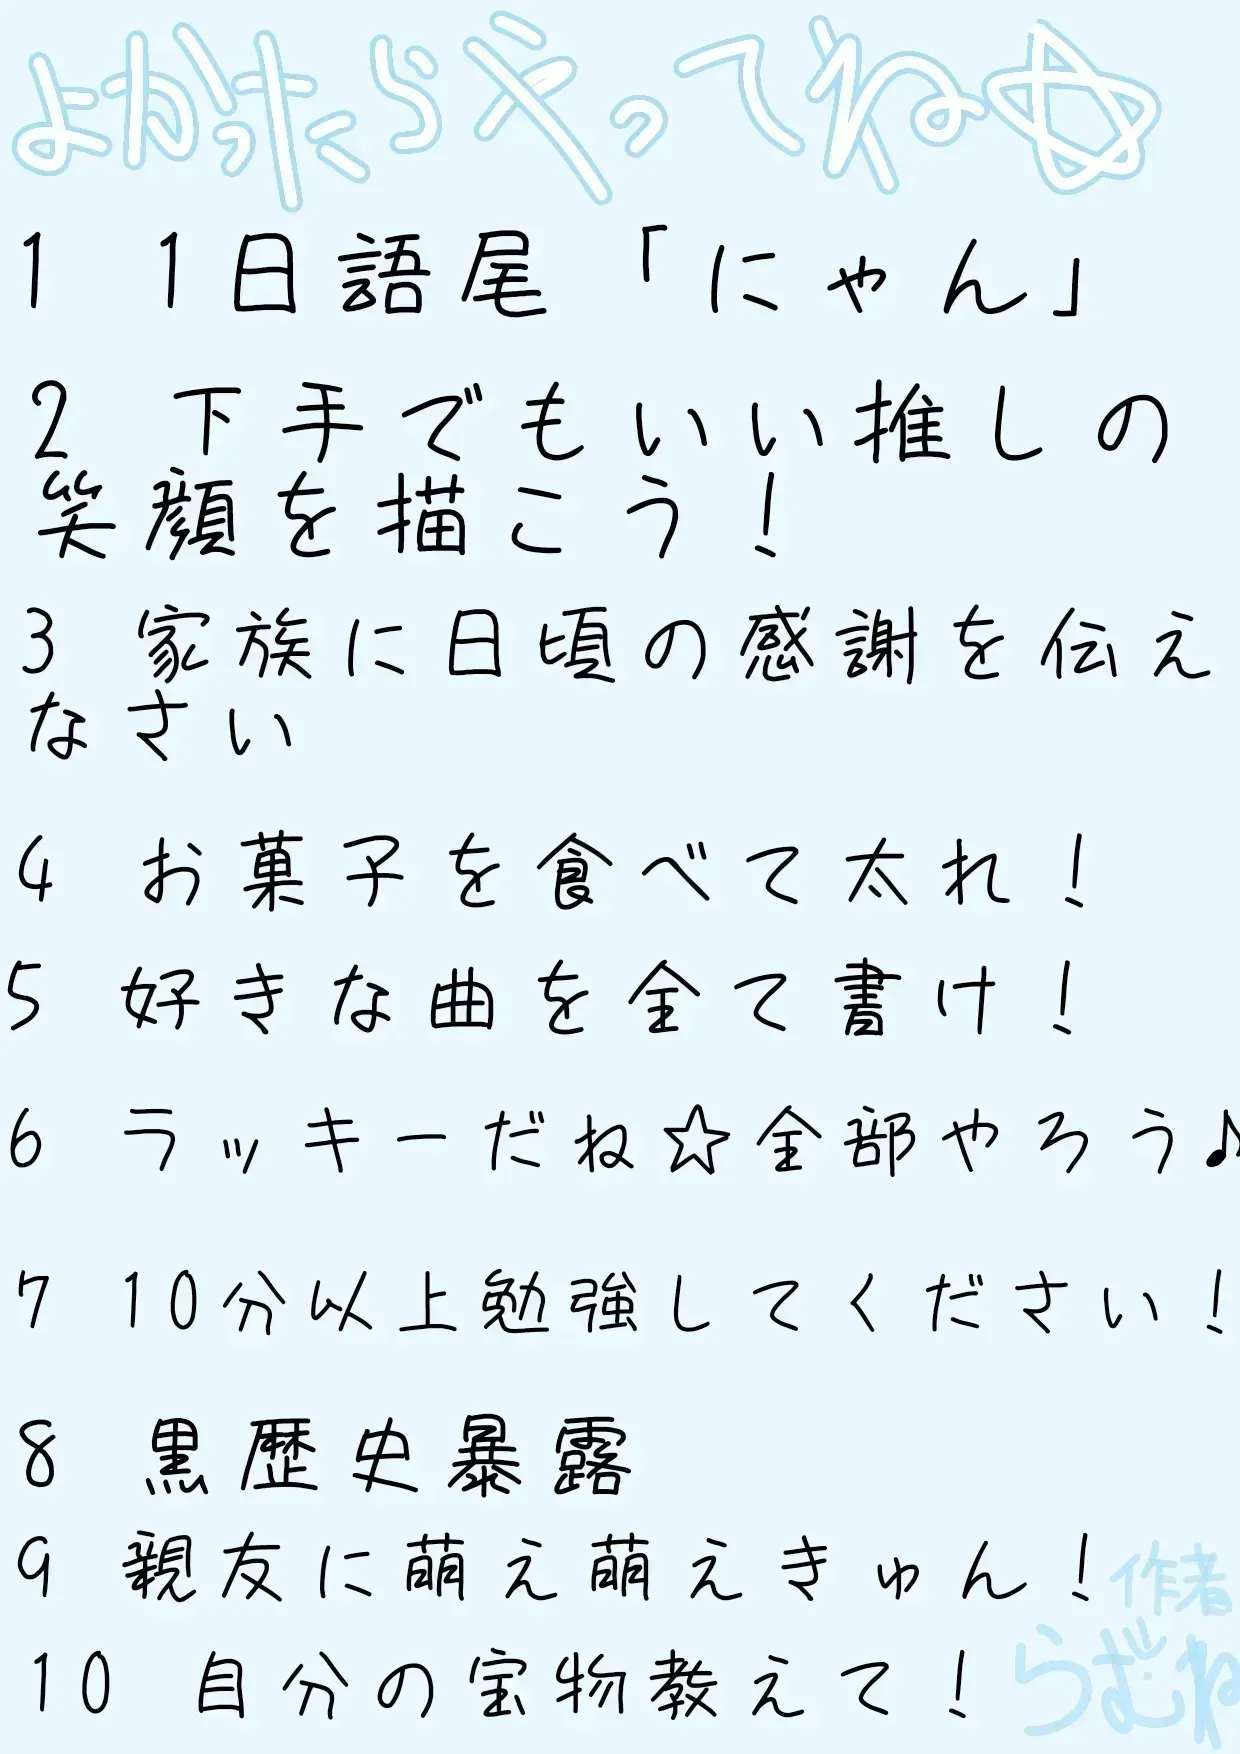 よかったらやってね☆
1 1日語尾「にゃん」
2 下手でもいい推しの
笑顔を描こう！
3 家族に日頃の感謝を伝え
なさい
4 お菓子を食べて太れ！
5 好きな曲を全て書け！
6 ラッキーだね☆全部やろう♪
7 10分以上勉強してください！
8 黒歴史暴露
9 親友に萌え萌えきゅん！
10 自分の宝物教えて！
作者
らむね